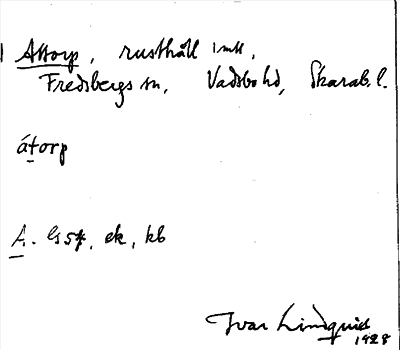 Attorp, rusthåll 1 mtl,
Fredsbergs sn, Vadsbo hd, Skarab. l.
átorp
A. GSK, ek, kb
Ivar Lindquist
1928